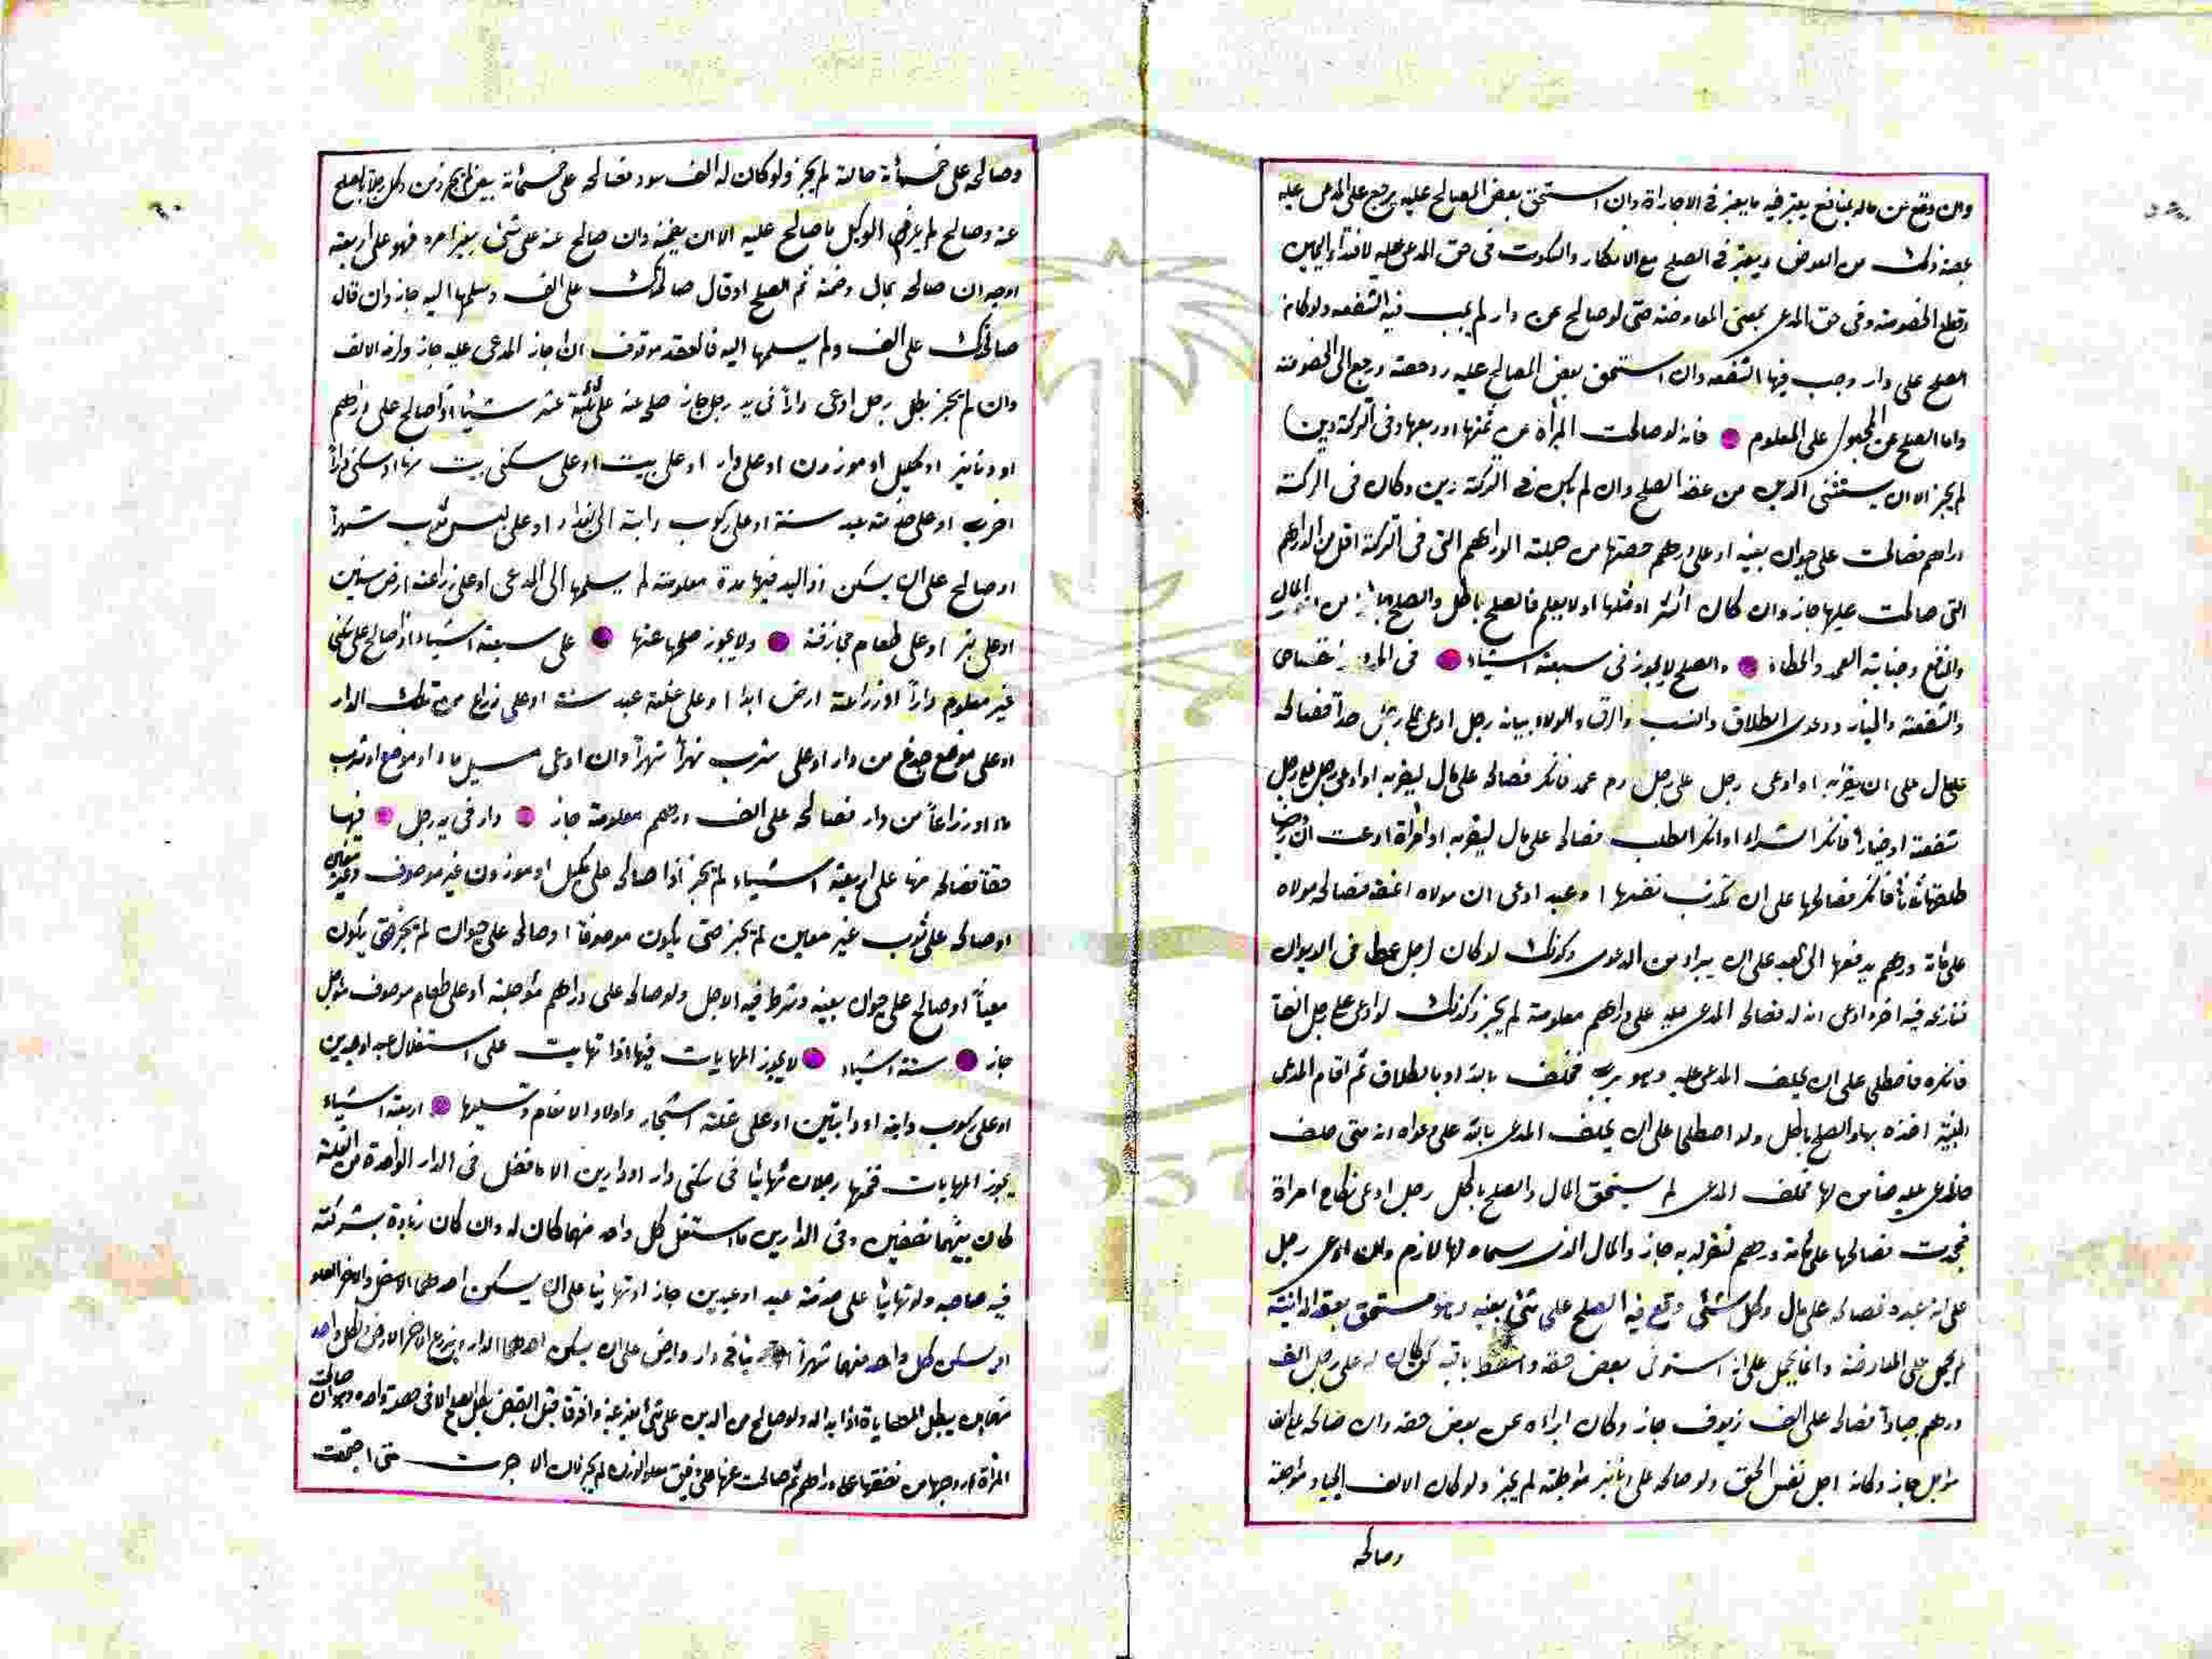 وان وقع عن مال بمنافع يعتبر فيه ما يعتبر في الاجارات وان استحق بعض المصالح عليه يرجع على المدعى عليه
بحصة ذلك من العوض ويعتبر في الصلح مع الانكار والسكوت في حق المدعى عليه لافتداء اليمين
وقطع الخصومة وفي حق المدعي بمعنى المعاوضة حتى لو صالح عن دار لم يجب فيه الشفعه ولو كان
الصلح على دار وجب فيها الشفعه وان استحق بعض المصالح عليه رد حصته ورجع الى الخصومة
واما الصلح عن المجهول على المعلوم فانه لو صالحت المرأة عن ثمنها او ربعها وفي التركة دين
لم يجز الا ان يستثنى الدين من عقد الصلح وان لم يكن في التركة دين وكان في التركة
دراهم فصالحت على حيوان بعينه او على دراهم حصتها من جملة الدراهم التي في التركة اقل من الدراهم
التي صالحت عليها جاز وان كان اكثر او مثلها او لا يعلم فالصلح باطل والصلح جائز من المال
والمنافع وجناية العمد والخطاء والصلح لا يجوز في سبعة اشياء في
والشفعة والخيار ودعوى الطلاق والنسب والرق والولاء بيانه رجل ادعى على رجل حدا فصالحه
على مال على ان يقر به او ادعى رجل على رجل دم عمد فانكر فصالحه على مال ليقر به او ادعى رجل على رجل
شفعة او خيارا فانكر الشراء او انكر الطلب فصالحه على مال ليقر به او امرأة ادعت ان زوجها
طلقها ثلاثا فانكر فصالحها على ان تكذب نفسها او عبد ادعى ان مولاه اعتقه فصالحه مولاه
على مائة درهم يدفعها الى العبد على ان يبراه من الدعوى وكذلك لو كان لرجل عطا في الديوان
فنازعه فيه اخر وادعى انه له فصالحه المدعى عليه على دراهم معلومة لم يجز وكذلك لو ادعى على رجل الفا
فانكره فاصطلحا على ان يحلف المدعى عليه وهو برئ فحلف بالله او بالطلاق ثم اقام المدعي
البينة اخذه بها والصلح باطل ولو اصطلحا على ان يحلف المدعي بالله على دعواه انه متى حلف
فالمدعى عليه ضامن لها فحلف المدعي لم يستحق المال والصلح باطل رجل ادعى نكاح امراة
فجحدت فصالحها على مائة درهم لتقر له به جاز والمال الذي سماه لها لازم وان ادعى رجل
على انه عبده فصالحه على مال وكل شئ وقع فيه الصلح على شئ بعينه وهو مستحق بعقد المداينة
لم يحمل على المعاوضة وانما يحمل على انه استوفى بعض حقه واسقط باقيه كمن كان له على رجل الف
درهم جيادا فصالحه على الف زيوف جاز وكان ابراءه عن بعض حقه وان صالحه على الف
مؤجل جاز وكانه اجل نفس الحق ولو صالحه على دنانير مؤجلة لم يجز ولو كان الالف الجياد مؤجلة
وصالحه
وصالحه على خمسمائة حالة لم يجز ولو كان له الف سود فصالحه على خمسمائة بيض لم يجز ومن وكل رجلا بالصلح
عنه وصالح لم يلزم الوكيل ما صالح عليه الا ان يضمنه وان صالح عنه على شئ بغير امره فهو على اربعة
اوجه ان صالحه بمال وضمنه تم الصلح او قال صالحتك على الف وسلمها اليه جاز وان قال
صالحتك على الف ولم يسلمها اليه فالعقد موقوف ان اجاز المدعى عليه جاز ولزمه الالف
وان لم يجز بطل رجل ادعى دارا في يد رجل جاز صلحه عنه على ثلثة عشر شيئا اذا صالح على دراهم
او دنانير او مكيل او موزون او على دار او على بيت او على سكنى بيت منها او سكنى دارا
اخرى او على خدمة عبد سنة او على ركوب دابة الى بغداد او على لبس ثوب شهرا
او صالح على ان يسكن ذو اليد فيها مدة معلومة لم يسلمها الى المدعي او على زراعة ارض سنين
او على بئر او على طعام مجازفة ولا يجوز صلحها عنها على سبعة اشياء اذا صالح على سكنى
غير معلوم دارا او زراعة ارض ابدا او على غلة عبد سنة او على ذراع من تلك الدار
او على موضع جذع من دار او على شرب نهرا شهرا وان ادعى مسيل ماء او موضع او شرب
ماء او ذراعا من دار فصالحه على الف درهم معلومة جاز دار في يد رجل فيها
حقا فصالحه منها على اربعة اشياء لم يجز اذا صالحه على مكيل او موزون غير موصوف وغير معين
او صالحه على ثوب غير معين لم يجز حتى يكون موصوفا او صالحه على حيوان لم يجز حتى يكون
معينا او صالح على حيوان بعينه وشرط فيه الاجل ولو صالحه على دراهم مؤجلة او على طعام موصوف مؤجل
جاز ستة اشياء لا يجوز المهايات فيها اذا تهايت على استغلال عبد او عبدين
او على ركوب دابة او دابتين او على غلة اشجار واولاد الانعام ونسلها اربعة اشياء
يجوز المهايات فيها رجلان تهايئا في سكنى دار او دارين الا ما فضل في الدار الواحدة من الغلة
كان بينهما نصفين وفي الدارين ما استغل كل واحد منهما كان له وان كان زيادة بشركته
فيه صاحبه ولو تهايئا على خدمة عبد او عبدين جاز او تهايئا على ان يسكن احدهما الاسفل والاخر العلو
او يسكن كل واحد منهما شهرا في دار وارض على ان يسكن احدهما الدار ويزرع الاخر الارض ولكل واحد
منهما ان يبطل المهاياة اذا بدا له ولو صالح من الدين على شئ بغير عينه وافترقا قبل القبض بطل الصلح الا في خصلة واحدة وهو ان صالحت
المرأة زوجها من نفقتها على دراهم ثم صالحت عنها على دقيق معلوم الوزن لم يجز فان الاجرت متى اجتمعت